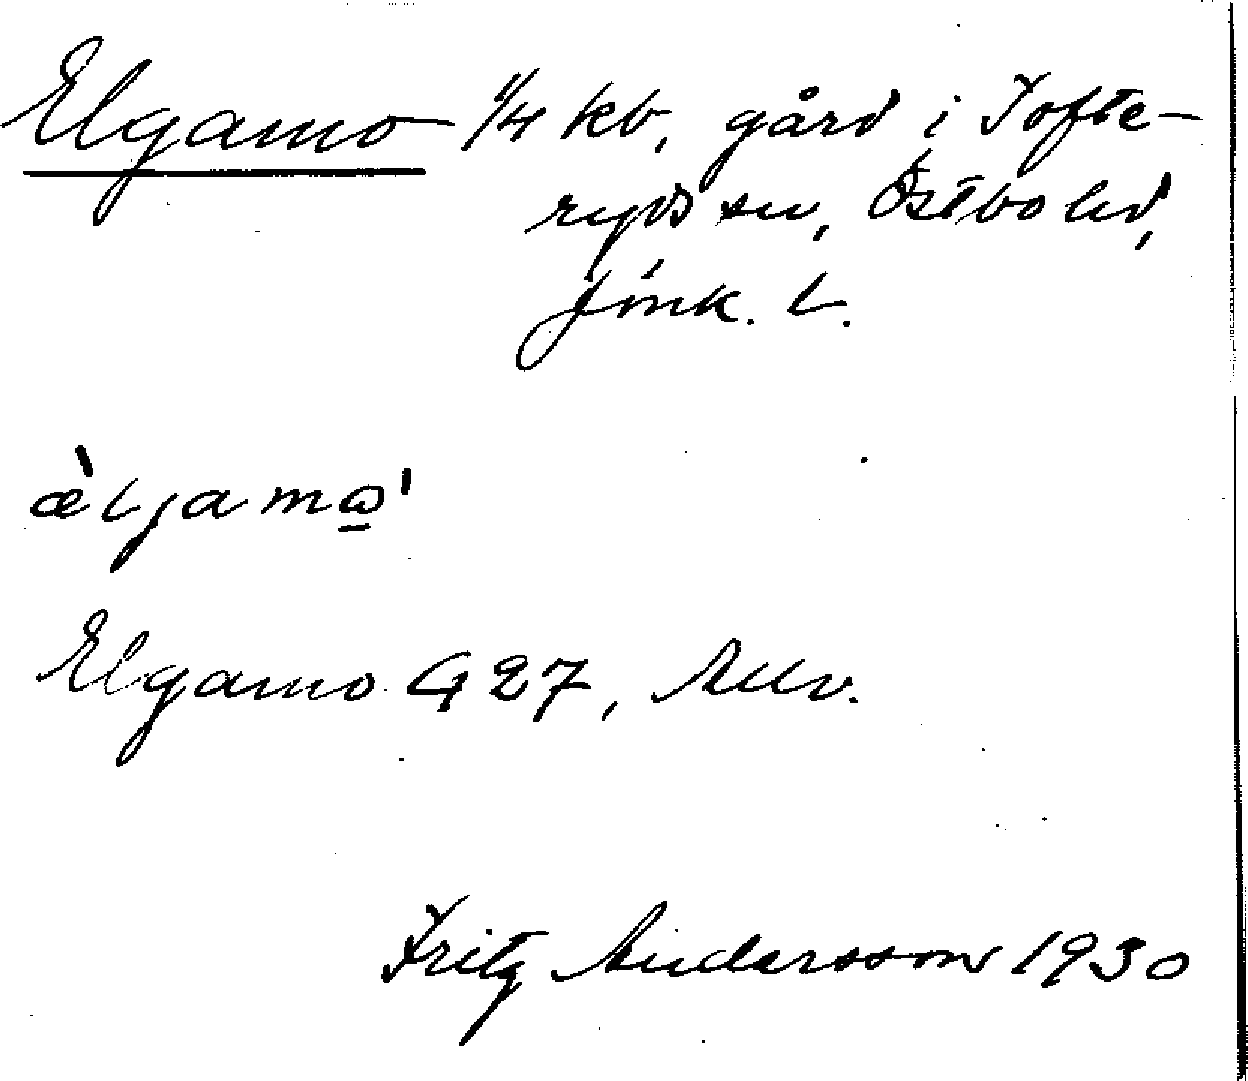 Elgamo 1/4 kb, gård i Tofte-
ryds sn, Östbo hd,
Jönk. L.
æ̀ljamω̱'
Elgamo G 27,
Fritz Andersson 1930